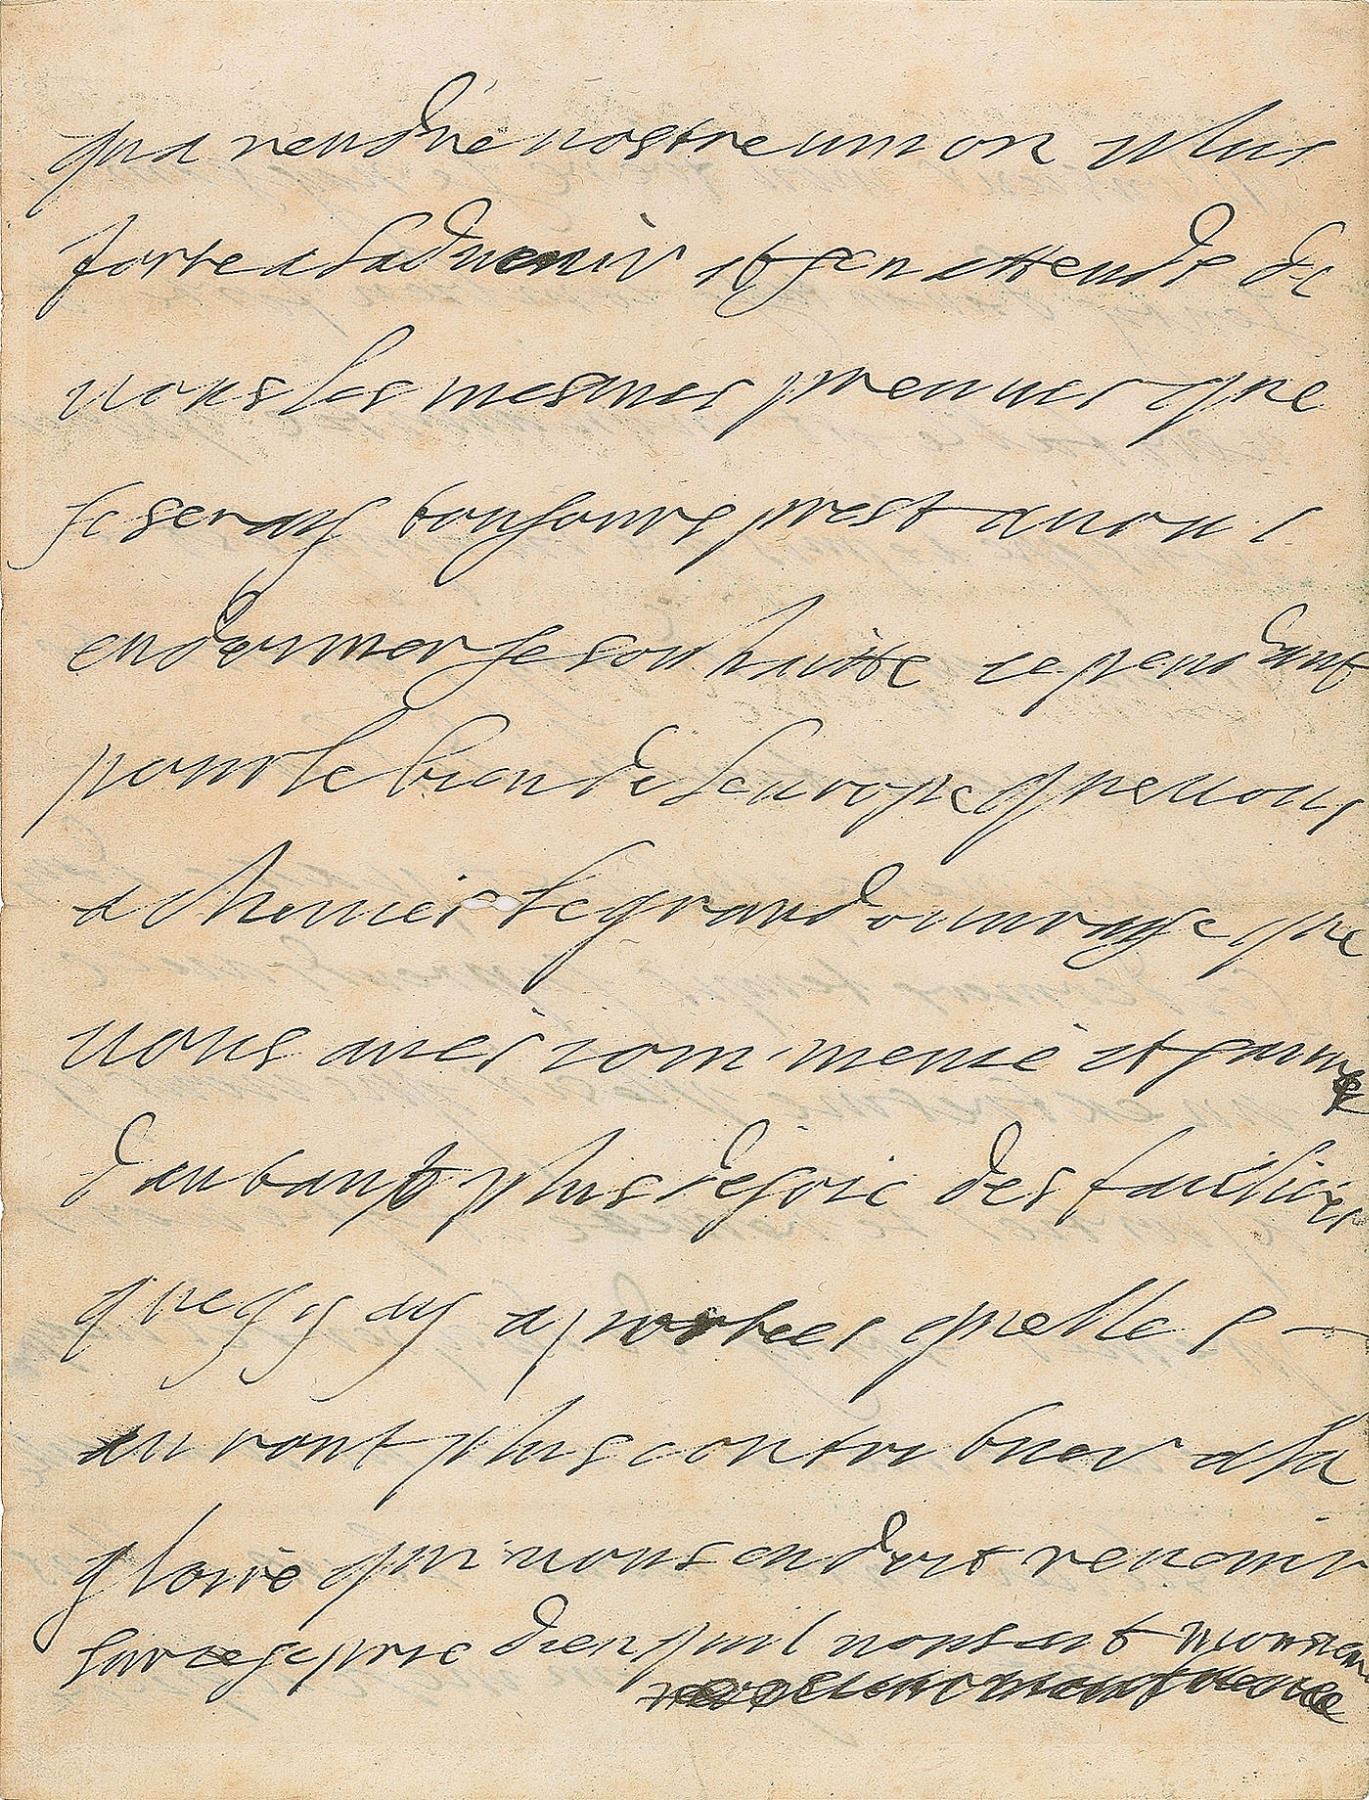 qua rendre nostre union plus
forte a ladvenir et jen attends de
vous les mesmes preuves que
je seray tousjours prest a vous
en donner je souhaitte cependant
pour le bien de leurope que vous
acheviés le grand ouvrage que
vous avés commencé et jaurai
dautant plus de joie des facilités
que jy ay aportees quelles
auront plus contribuer a la
gloire qui vous en doit revenir
sur ce je prie dieu quil vous ait monsieur